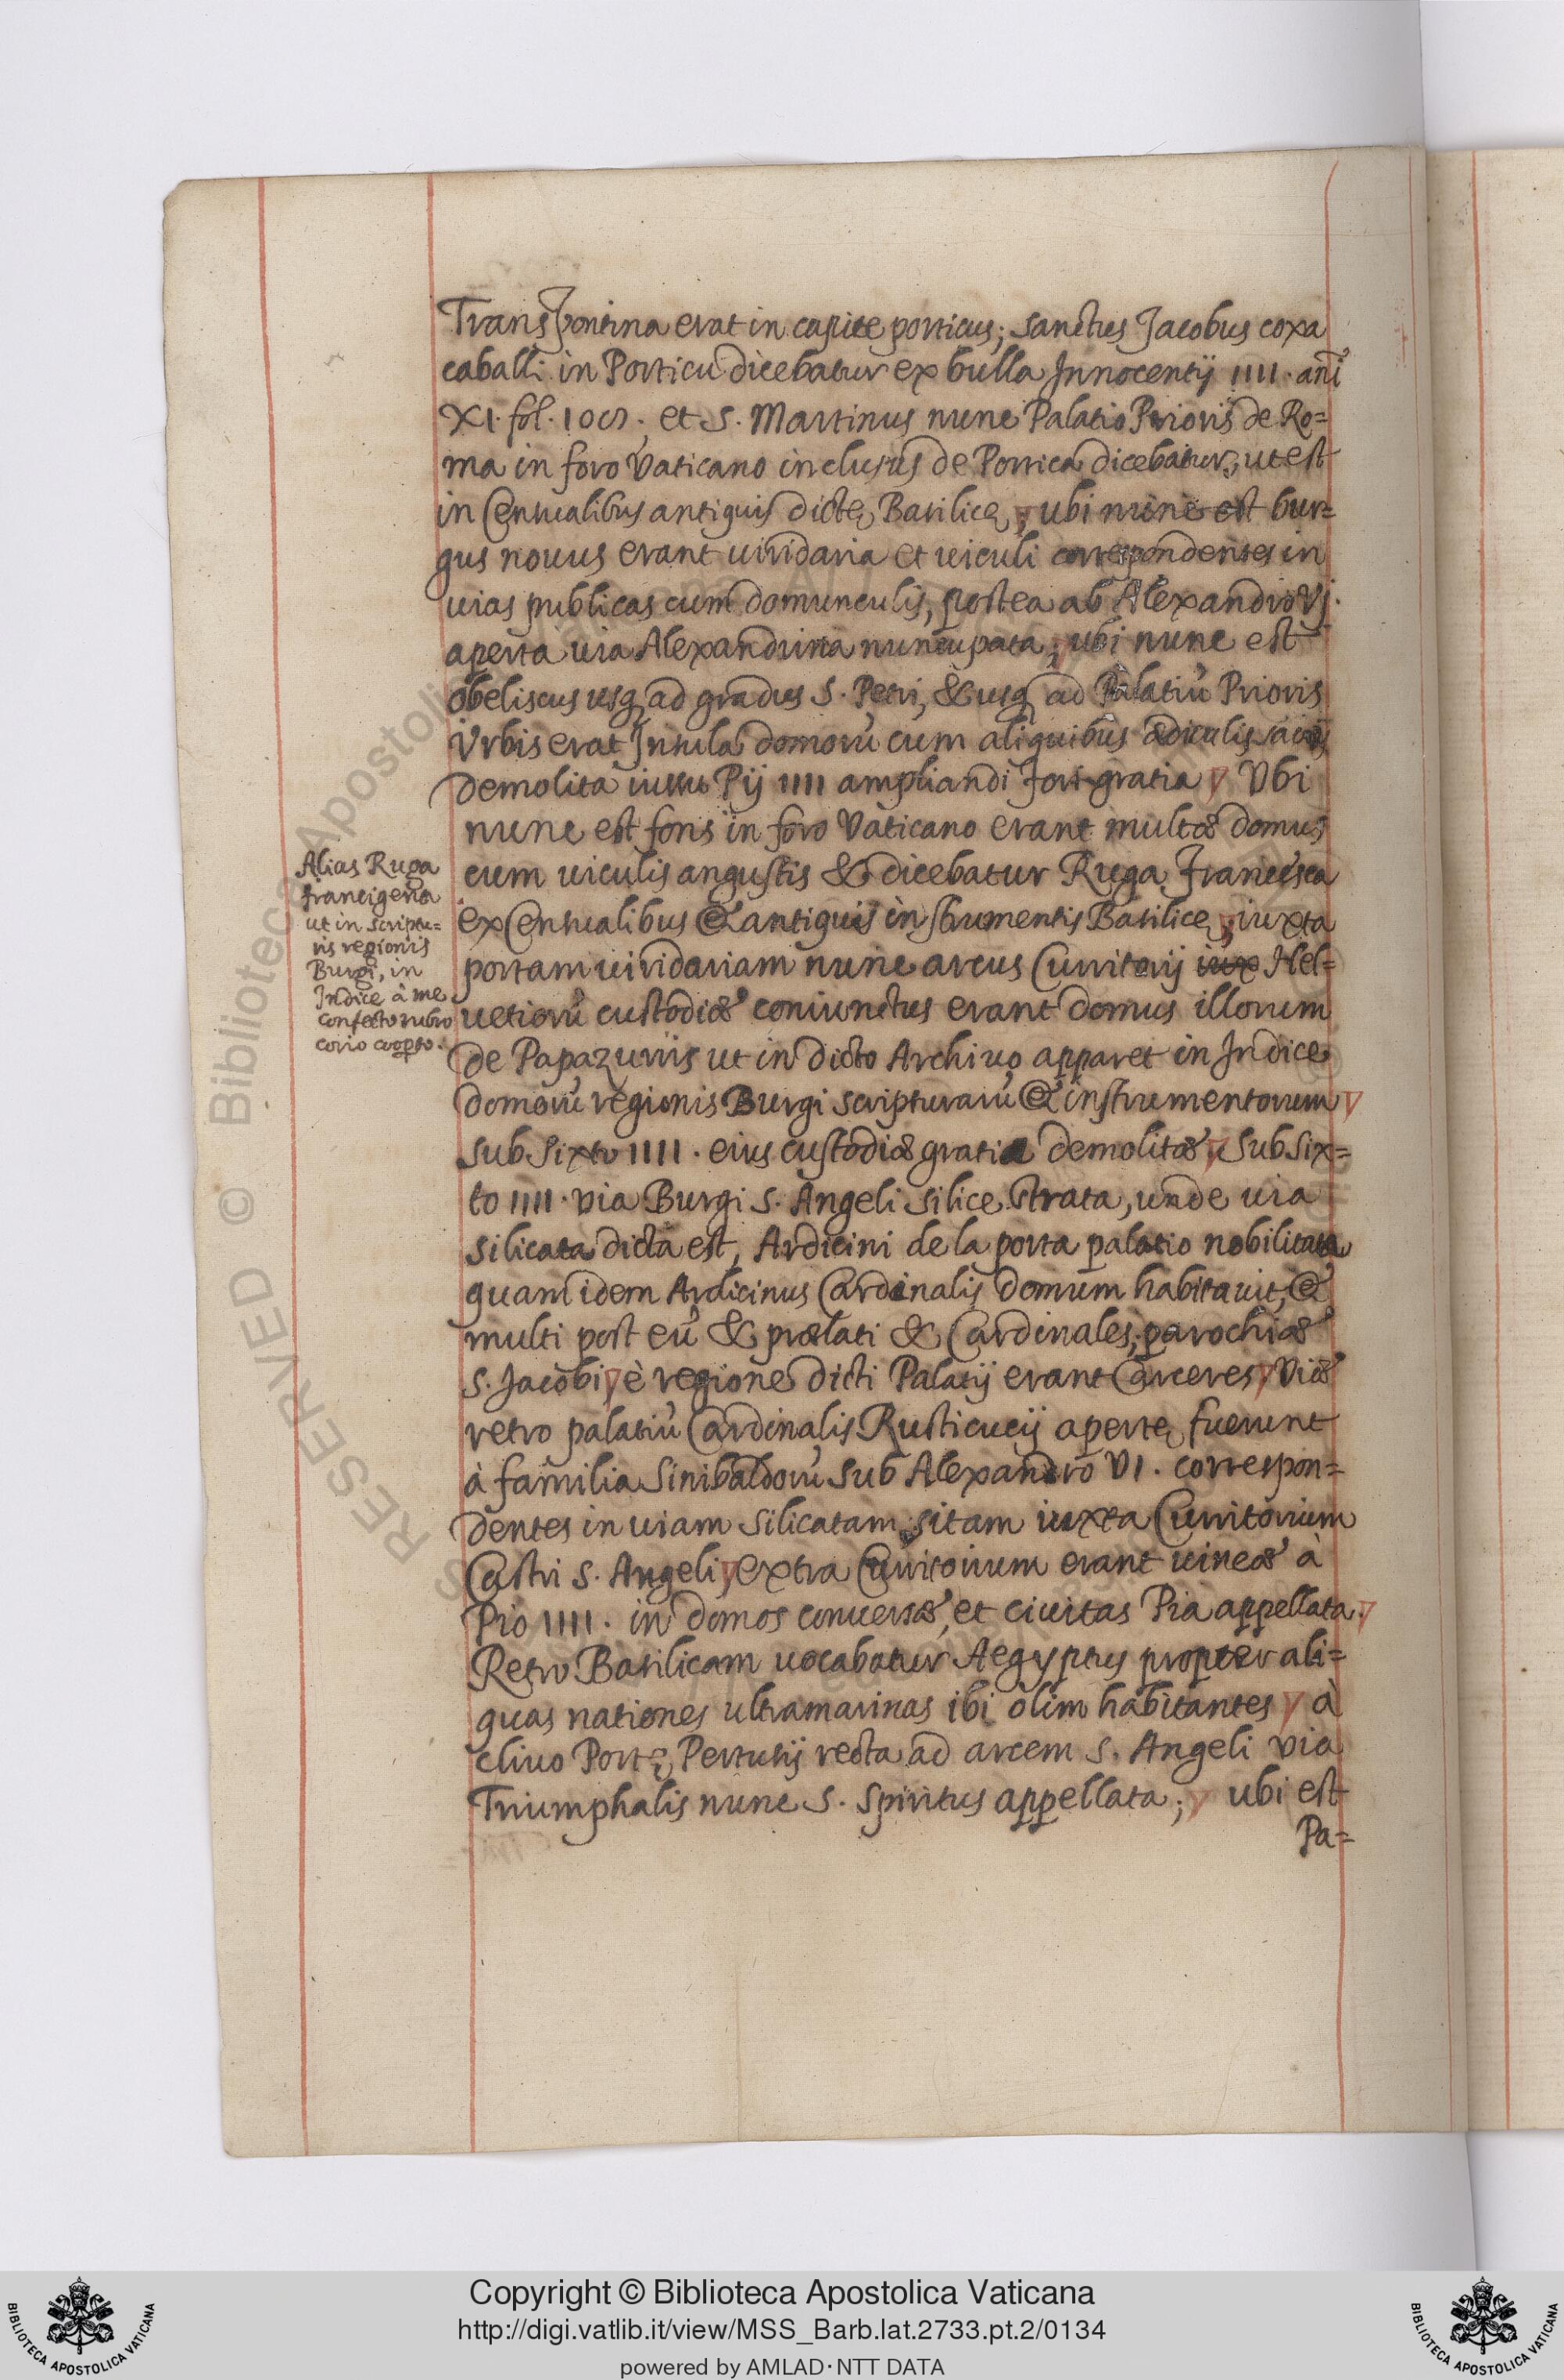 Transpontina erat in capite porticus; sanctus Jacobus coxa
caballi in Porticu dicebatur ex bulla Innocentij IIII. ani
XI. fol. et S. Martinus nunc Palatio Prioris de Ro=
ma in foro Vaticano inclusus de Portica dicebatur, ut est
in Censualibus antiquis dictę Basilicę, ubi nunc est bur=
gus nouus erant uiridaria et uiculi correspondentes in
uias publicas cum domunculis, postea ab Alexandro VJ.
aperta uia Alexandrina nuncupata; ubi nunc est
obeliscus usq ad gradus S. Petri, & usq ad Palatiũ Prioris
Vrbis erat Insula domorũ cum aliquibus ædiculis sacris
demolita iussu Pij IIII ampliandi fori gratia Vbi
nunc est fons in foro Vaticano erant multæ domus
cum uiculis angustis & dicebatur Ruga Francesca
ex Censualibus & antiquis instrumentis Basilicę, iuxta
portam uiridariam nunc arcus Curritorij iux Hel=
uetiorũ custodiæ coniunctus erant domus illorum
de Papazurris ut in dicto Archiuo apparet in Indice
domorũ regionis Burgi scripturarũ & instrumentorum
sub Sixto IIII. eius custodiæ gratia demolitæ, Sub Six=
to IIII. via Burgi S. Angeli silice strata, unde uia
silicata dicta est, Ardicini de la porta palatio nobilitata
quam idem Ardicinus Cardinalis domum habitauit, &
multi post eũ & prælati & Cardinales, parochiæ
S. Jacobi è regione dicti Palatij erant Carceres Viæ
retro palatiũ Cardinalis Rusticucij apertę fuerunt
à familia Sinibaldorũ sub Alexandro VI. correspon=
dentes in uiam silicatam sitam iuxta Curritorium
Castri S. Angeli extra Curritorium erant uineæ à
Pio IIII. in domos conuersæ, et ciuitas Pia appellata.
Retro Basilicam uocabatur Aegyptus propter ali=
quas nationes ultramarinas ibi olim habitantes à
cliuo Portę Pertusij recta ad arcem S. Angeli via
Triumphalis nunc S. Spiritus appellata; ubi est
Pa=
Alias Ruga
francigena
ut in scriptu=
ris regionis
Burgi, in
Indice à me
confecto rubro
corio cooperto.
Copyright © Biblioteca Apostolica Vaticana
http://digi.vatlib.it/view/MSS_Barb.lat.2733.pt.2/0134
powered by AMLAD·NTT DATA
BIBLIOTECA APOSTOLICA VATICANA
BIBLIOTECA APOSTOLICA VATICANA